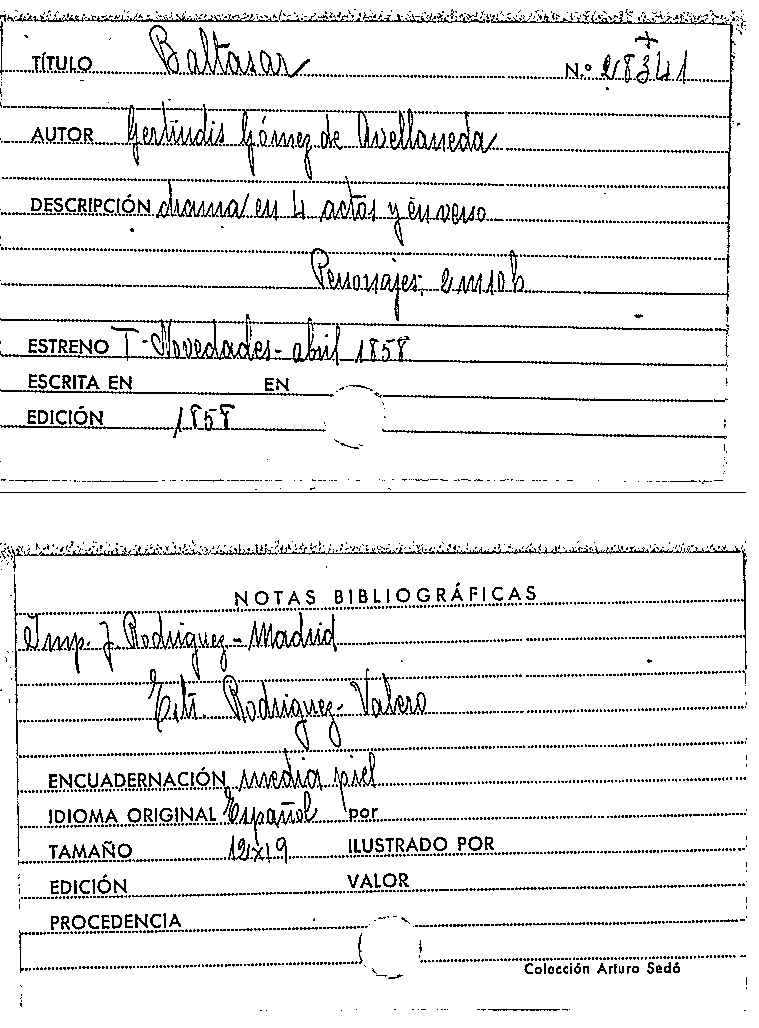 TÍTULO Baltasar N.º 28341
AUTOR Gertrudis Gómez de Avellaneda
DESCRIPCIÓN drama en 4 actos y en verso
Personajes,
ESTRENO T-Novedades-abril 1858
ESCRITA EN EN
EDICIÓN 1858
NOTAS BIBLIOGRÁFICAS
Imp. J. Rodriguez-Madrid
Rodriguez-Valero
ENCUADERNACIÓN media piel
IDIOMA ORIGINAL Español por
TAMAÑO 12x19 ILUSTRADO POR
EDICIÓN VALOR
PROCEDENCIA
Colección Arturo Sedó